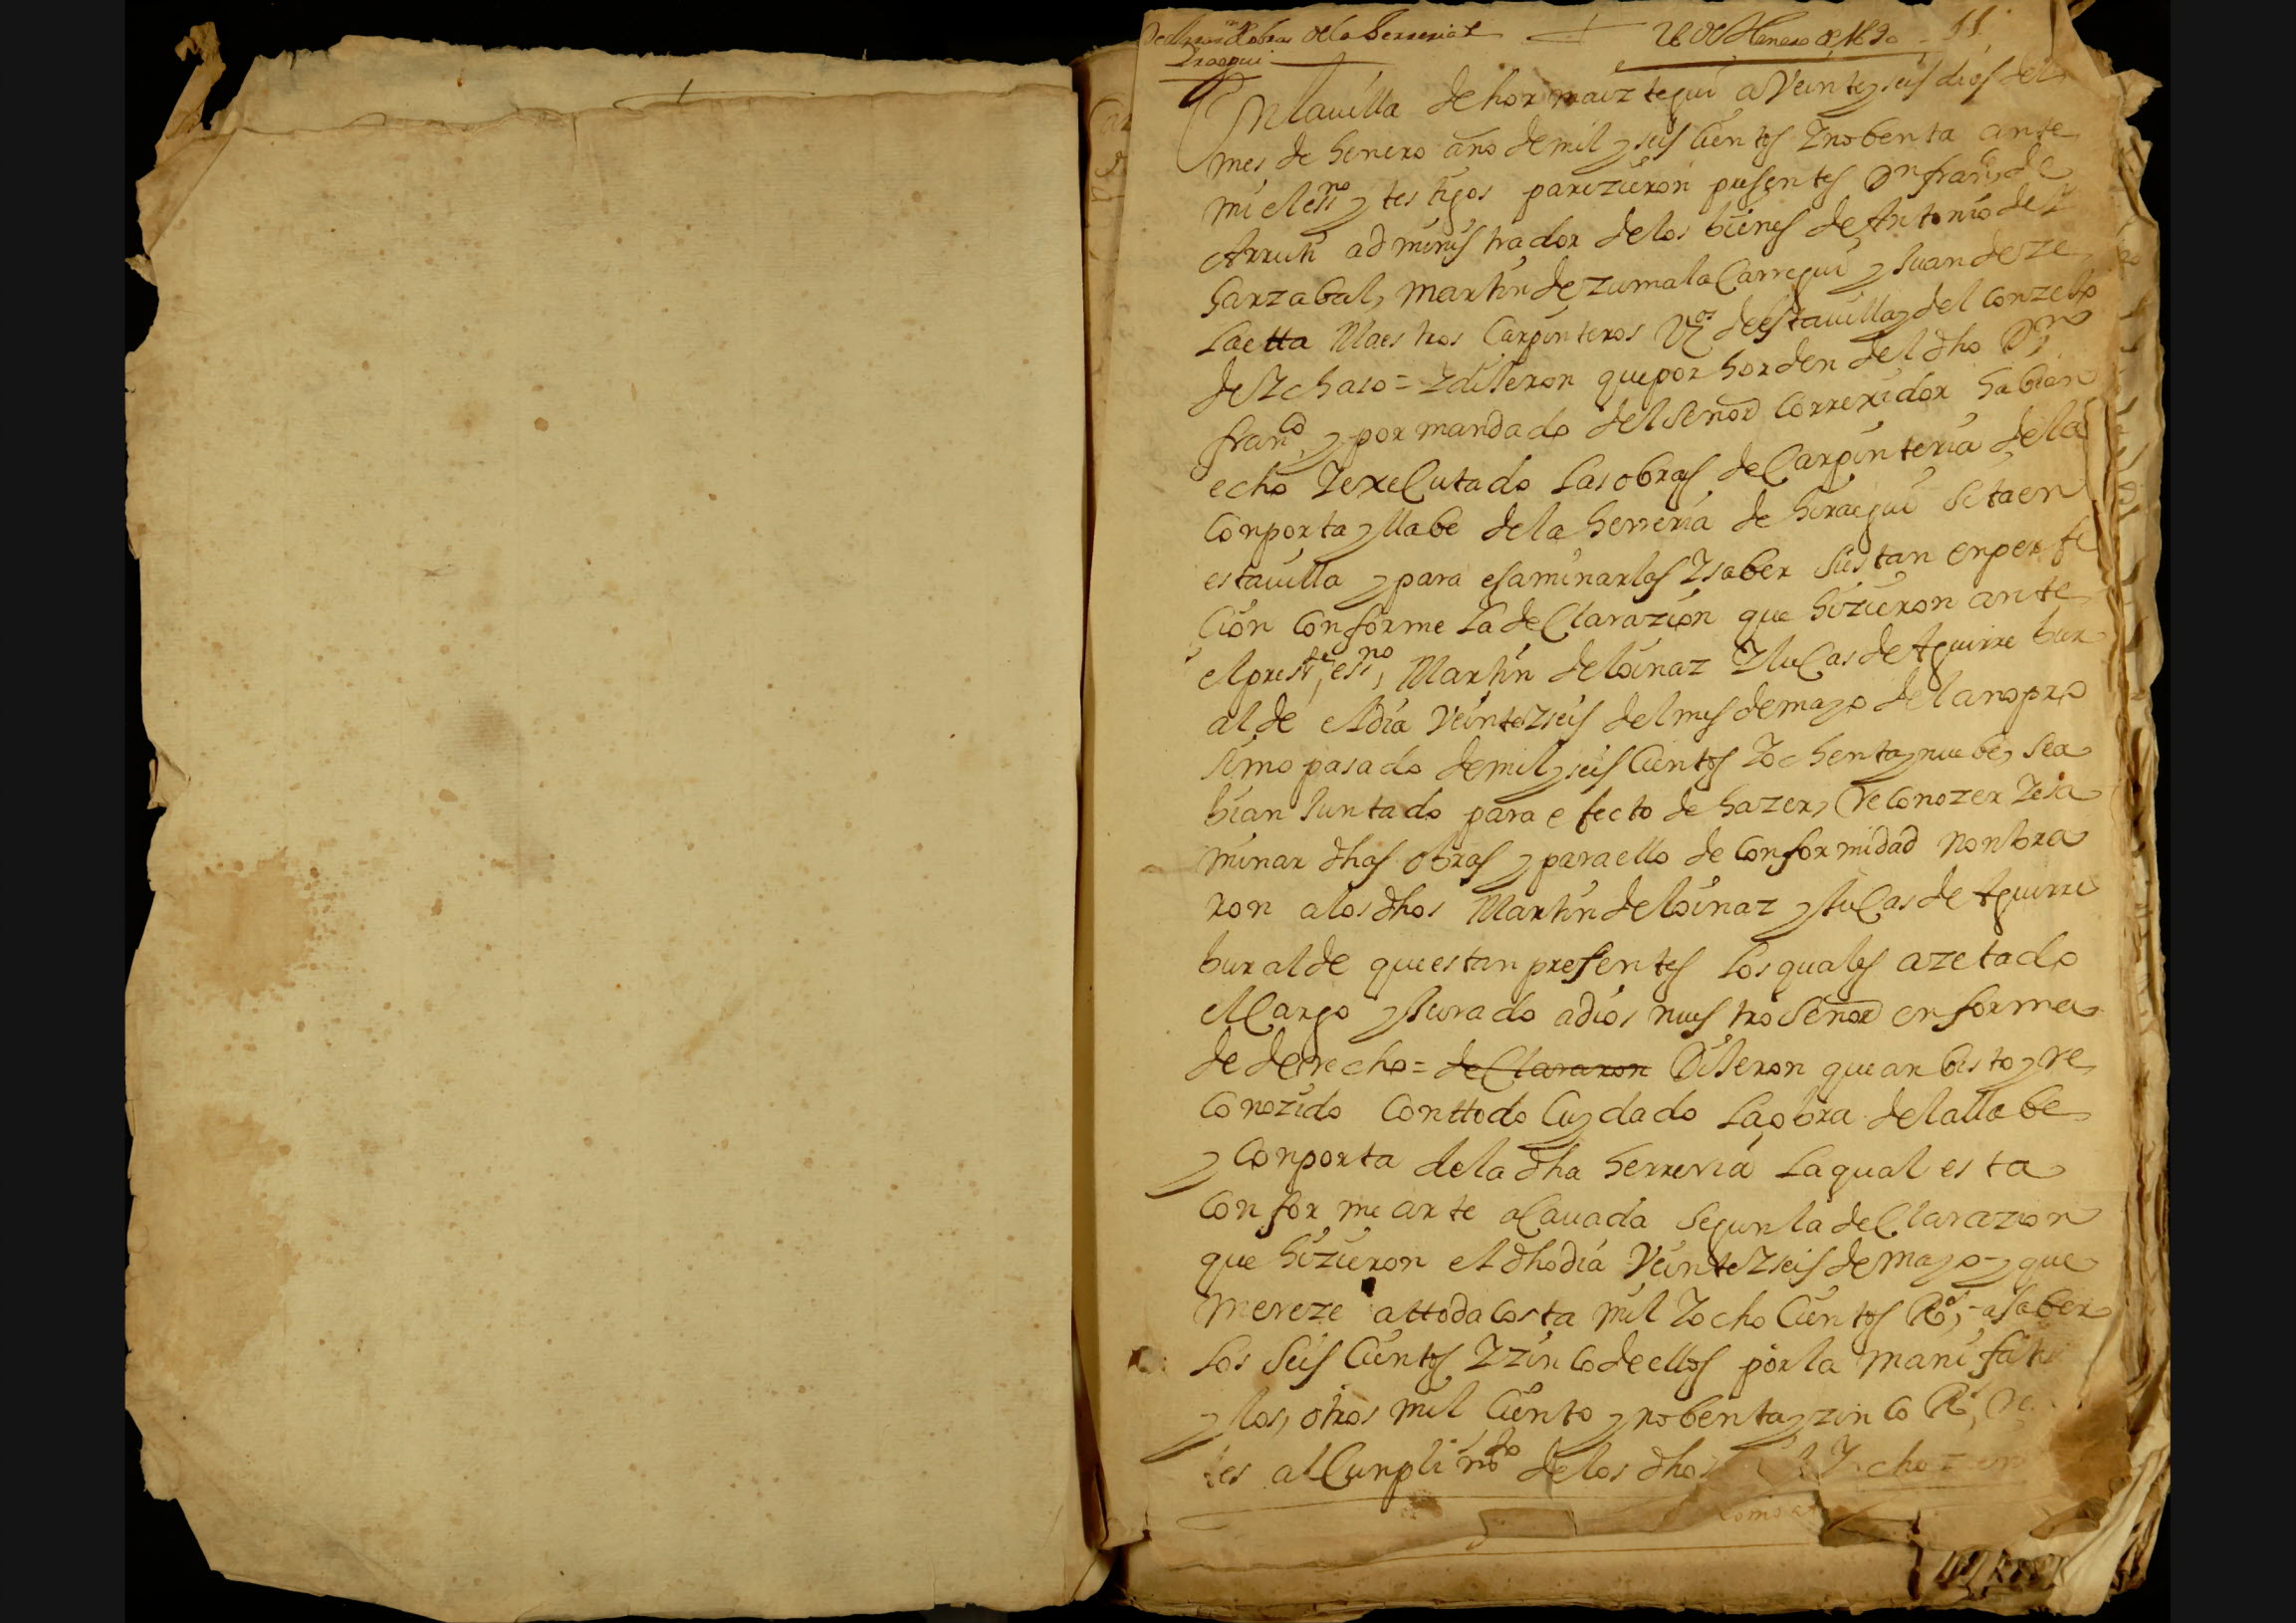 Declaraon de obras de la herreria de
Yraegui
26 de Henero de 1690 11
En la villa de hormaiztegui a Veinte y seis dias del
mes de henero año de mil y seis cientos y nobenta ante
mi el essno y testigos parezieron presentes Dn franco de
Arruti administrador de los bienes de Antonio de
harzabal, Martin de zumalaCarregui y Juan de ze
Laetta Maestros Carpinteros Vzos de esta villa y del conzejo
de Ychaso = y dijeron que por horden del dho Dn
franco, y por mandado del señor Correxidor habian
echo y exeCutado Las obras de Carpinteria de la
Conporta y llabe de la herreria de hiraegui sita en
esta villa y para esaminarlas y saber si estan en perfe
cion conforme La deClarazion que hizieron ante
el preste, essno, Martin de loinaz y luCas de Aguirre bur
alde el dia Veinte y seis del mes de mayo del año pro
simo pasado de mil y seis Cientos y ochenta y nuebe, se a
bian Juntado para efecto de hazer, Reconozer y esa
minar dhas obras y para ello de conformidad nonbra
ron a los dhos Martin de loinaz y luCas de Aguirre
buralde que estan presentes Los quales azetado
el Cargo y Jurado a dios nuestro Señor en forma
de derecho = deClararon Dijeron que an bisto y re
Conozido Con ttodo Cuydado La obra de la llabe
y Conporta de la dha herreria La qual esta
Conforme arte aCavada Segun la deClarazion
que hizieron el dho dia Veinte y seis de mayo y que
Mereze a ttoda costa mil y ocho Cientos Rs, a saber
Los Seis Cientos y zinco de ellos por la manifat
y los, otros mil Ciento y nobenta y zinco Rs,
les al Cunplimto de los dhos